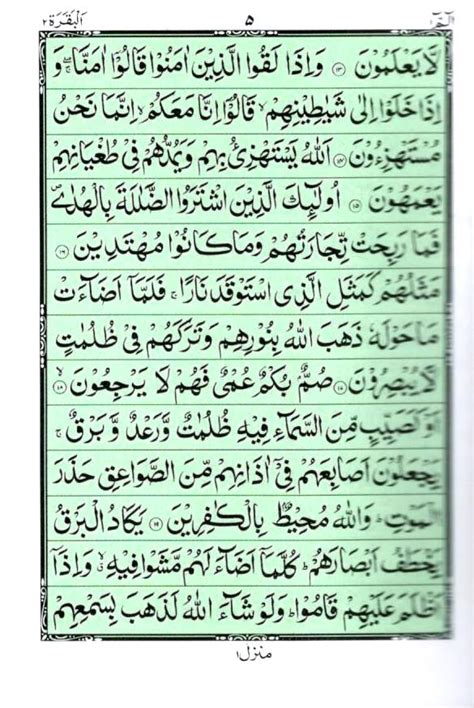 الٓـمّٓ ١ ٥ اَلْبَقَرَة ٢
لَّا يَعْلَمُوْنَ ۝١٣ وَاِذَا لَقُوا الَّذِيْنَ اٰمَنُوْا قَالُوْۤا اٰمَنَّا ۖۚ وَ
اِذَا خَلَوْا اِلٰى شَيٰطِيْنِهِمْ ۙ قَالُوْۤا اِنَّا مَعَكُمْ ۙ اِنَّمَا نَحْنُ
مُسْتَهْزِءُوْنَ ۝١٤ اَللّٰهُ يَسْتَهْزِئُ بِهِمْ وَيَمُدُّهُمْ فِيْ طُغْيَانِهِمْ
يَعْمَهُوْنَ ۝١٥ اُولٰٓئِكَ الَّذِيْنَ اشْتَرَوُا الضَّلٰلَةَ بِالْهُدٰى ۪
فَمَا رَبِحَتْ تِّجَارَتُهُمْ وَمَا كَانُوْا مُهْتَدِيْنَ ۝١٦
مَثَلُهُمْ كَمَثَلِ الَّذِى اسْتَوْقَدَ نَارًا ۚ فَلَمَّاۤ اَضَآءَتْ
مَا حَوْلَهٗ ذَهَبَ اللّٰهُ بِنُوْرِهِمْ وَتَرَكَهُمْ فِيْ ظُلُمٰتٍ
لَّا يُبْصِرُوْنَ ۝١٧ صُمٌّۢ بُكْمٌ عُمْيٌ فَهُمْ لَا يَرْجِعُوْنَ ۝١٨
اَوْ كَصَيِّبٍ مِّنَ السَّمَآءِ فِيْهِ ظُلُمٰتٌ وَّرَعْدٌ وَّبَرْقٌ ۚ
يَجْعَلُوْنَ اَصَابِعَهُمْ فِيْۤ اٰذَانِهِمْ مِّنَ الصَّوَاعِقِ حَذَرَ
الْمَوْتِ ؕ وَاللّٰهُ مُحِيْطٌۢ بِالْكٰفِرِيْنَ ۝١٩ يَكَادُ الْبَرْقُ
يَخْطَفُ اَبْصَارَهُمْ ؕ كُلَّمَاۤ اَضَآءَ لَهُمْ مَّشَوْا فِيْهِ ۙ وَاِذَاۤ
اَظْلَمَ عَلَيْهِمْ قَامُوْا ؕ وَلَوْ شَآءَ اللّٰهُ لَذَهَبَ بِسَمْعِهِمْ
منزل ١